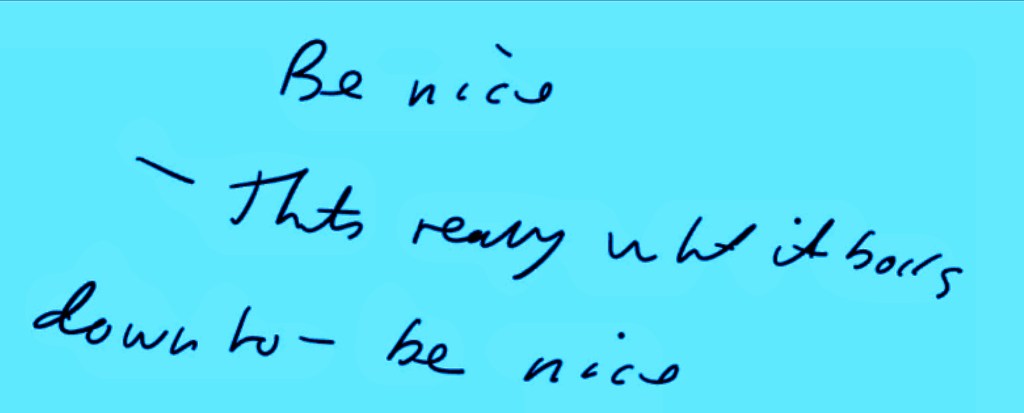 Be nice
- Thats really what it boils
down to - be nice